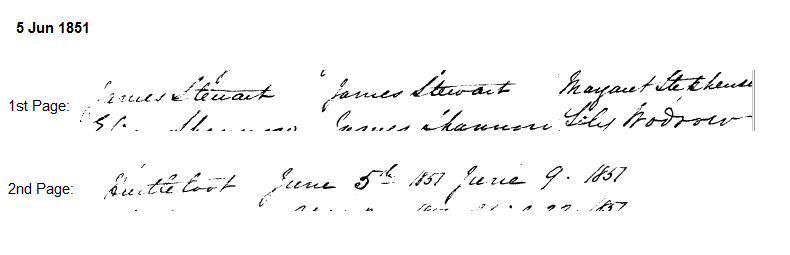 5 Jun 1851
1st Page: James Stewart James Stewart Margaret Stephenso
James Shannon Lily Wodrow
2nd Page: June 5th 1851 June 9. 1851